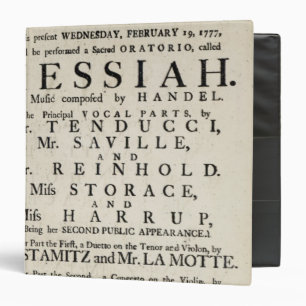 s present WEDNESDAY, FEBRUARY 19, 1777,
l be performed a Sacred ORATORIO, called
ESSIAH.
Music composed by HANDEL.
he Principal VOCAL PARTS, by
r. TENDUCCI,
Mr. SAVILLE,
AND
r. REINHOLD.
Miss STORACE,
AND
Miss HARRUP,
Being her SECOND PUBLIC APPEARANCE.)
r Part the First, a Duetto on the Tenor and Violin, by
STAMITZ and Mr. LA MOTTE.
Part the Second, a Concerto on the Violin, by